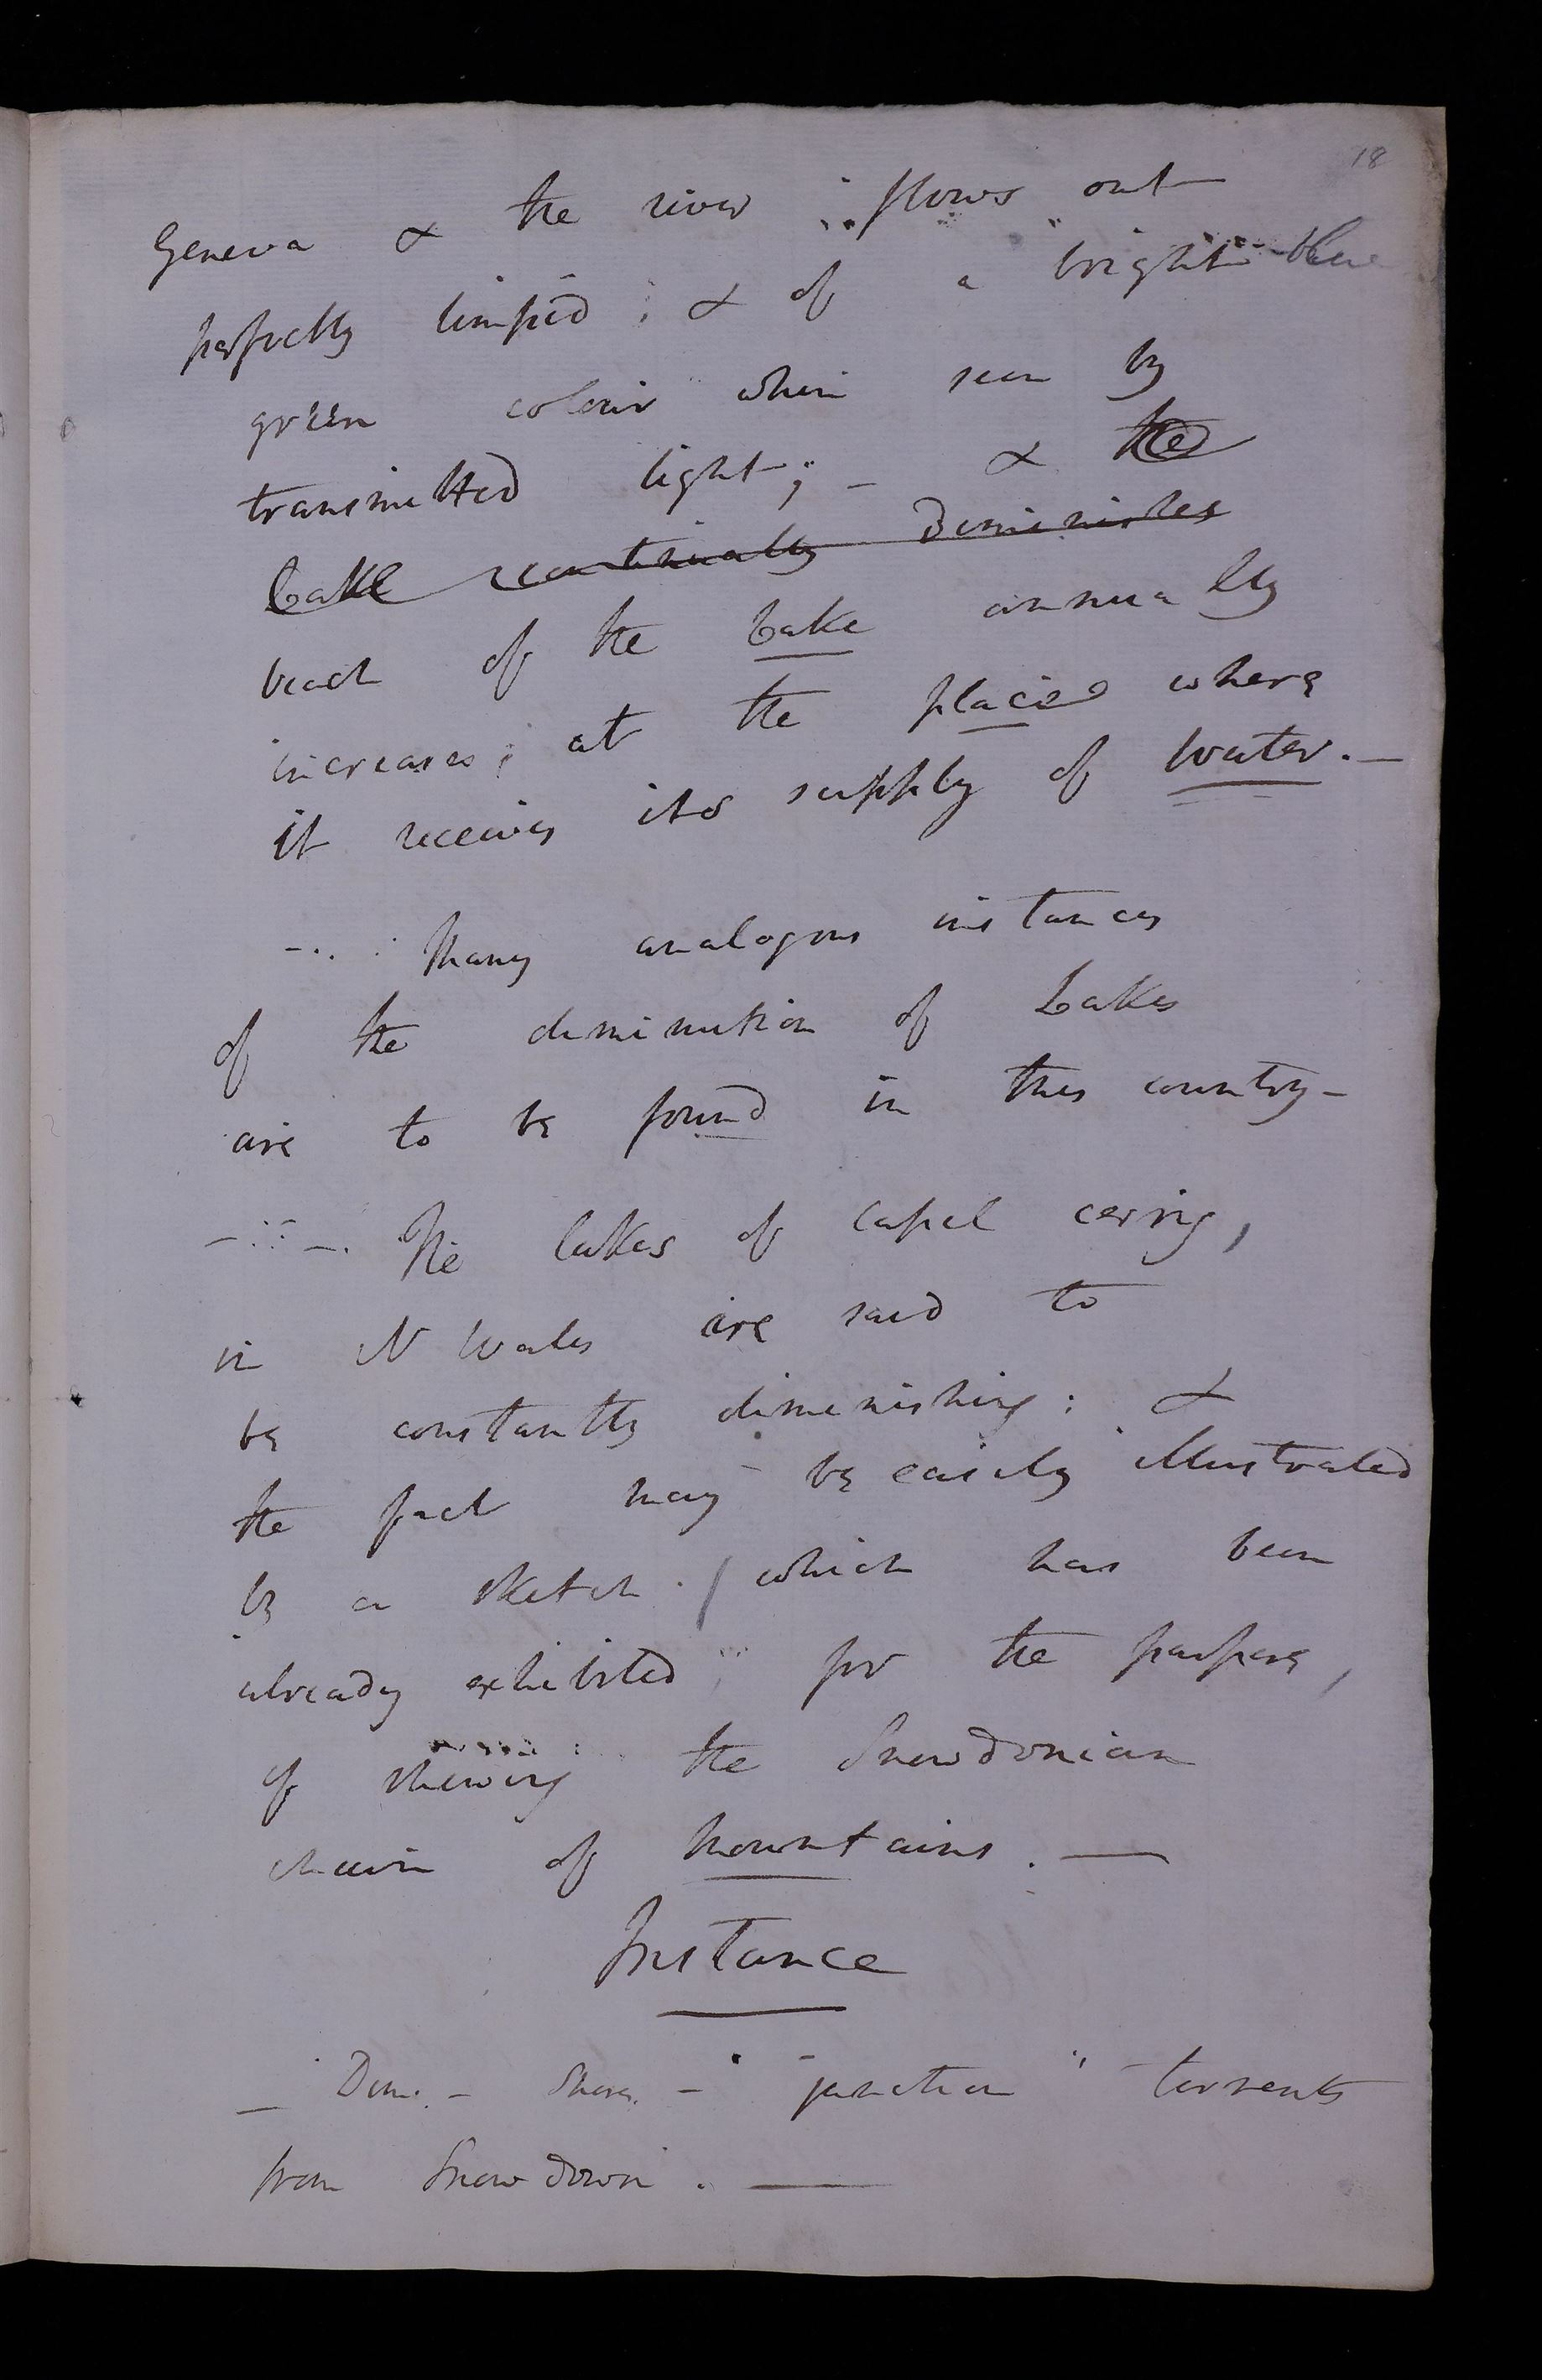 18
Geneva & the river flows out
perfectly limpid; & of a bright blue
green colour when seen by
transmitted light; – & the
Lake continually diminishes
beach of the Lake annually
increases; at the place where
it receives its supply of Water. —
– Many analogous instances
of the diminution of Lakes
are to be found in this country –
– – The lakes of Capel cerrig,
in N Wales are said to
be constantly diminishing: &
the fact may be easily illustrated
by a sketch. / which has been
already exhibited for the purpose,
of shewing the Snowdonian
chain of Mountains. —
Instance
– Dim. – Shores. – "junction" torrents
from Snowdown. —